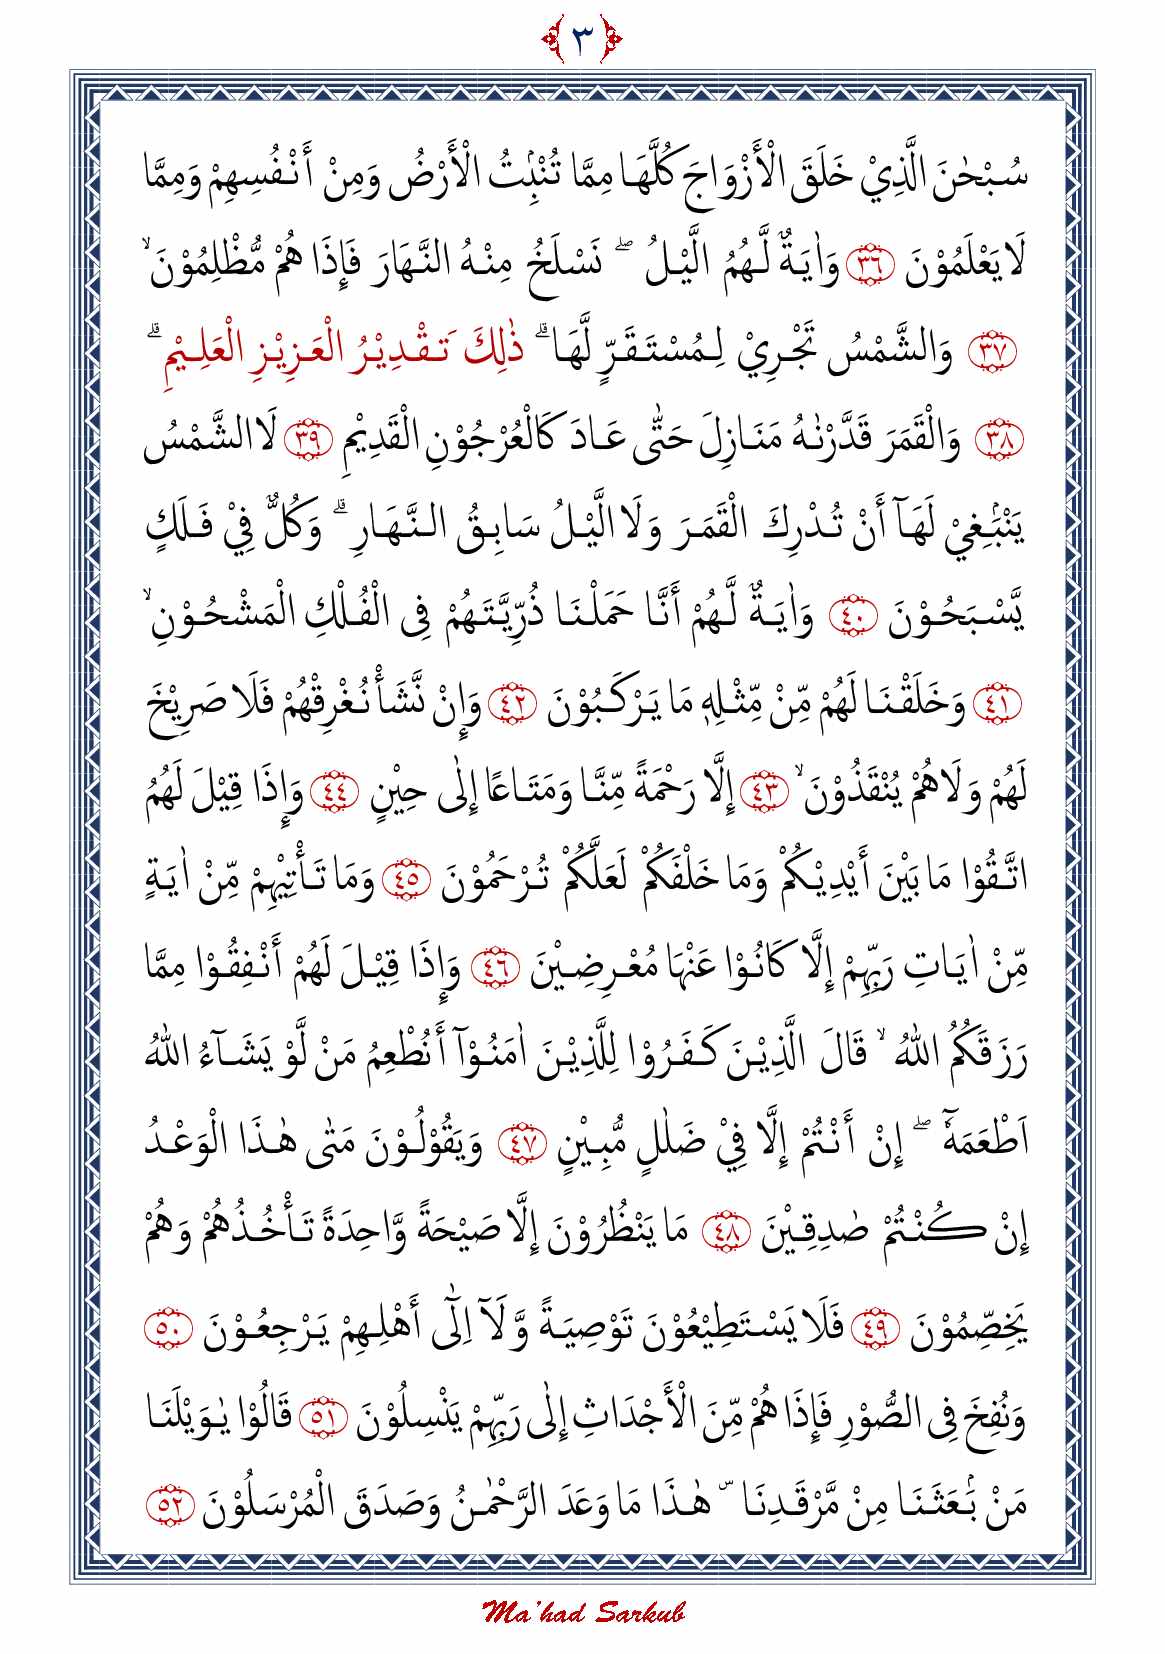 ﴿ ٣ ﴾
سُبْحٰنَ الَّذِيْ خَلَقَ الْأَزْوَاجَ كُلَّهَا مِمَّا تُنْۢبِتُ الْأَرْضُ وَمِنْ أَنْفُسِهِمْ وَمِمَّا
لَا يَعْلَمُوْنَ ٣٦ وَاٰيَةٌ لَّهُمُ الَّيْلُ ۖ نَسْلَخُ مِنْهُ النَّهَارَ فَإِذَا هُمْ مُّظْلِمُوْنَ ۙ
٣٧ وَالشَّمْسُ تَجْرِيْ لِمُسْتَقَرٍّ لَّهَا ۗ ذٰلِكَ تَقْدِيْرُ الْعَزِيْزِ الْعَلِيْمِ ۗ
٣٨ وَالْقَمَرَ قَدَّرْنٰهُ مَنَازِلَ حَتّٰى عَادَ كَالْعُرْجُوْنِ الْقَدِيْمِ ٣٩ لَا الشَّمْسُ
يَنْۢبَغِيْ لَهَآ أَنْ تُدْرِكَ الْقَمَرَ وَلَا الَّيْلُ سَابِقُ النَّهَارِ ۗ وَكُلٌّ فِيْ فَلَكٍ
يَّسْبَحُوْنَ ٤٠ وَاٰيَةٌ لَّهُمْ أَنَّا حَمَلْنَا ذُرِّيَّتَهُمْ فِى الْفُلْكِ الْمَشْحُوْنِ ۙ
٤١ وَخَلَقْنَا لَهُمْ مِّنْ مِّثْلِهٖ مَا يَرْكَبُوْنَ ٤٢ وَإِنْ نَّشَأْ نُغْرِقْهُمْ فَلَا صَرِيْخَ
لَهُمْ وَلَا هُمْ يُنْقَذُوْنَ ۙ ٤٣ إِلَّا رَحْمَةً مِّنَّا وَمَتَاعًا إِلٰى حِيْنٍ ٤٤ وَإِذَا قِيْلَ لَهُمُ
اتَّقُوْا مَا بَيْنَ أَيْدِيْكُمْ وَمَا خَلْفَكُمْ لَعَلَّكُمْ تُرْحَمُوْنَ ٤٥ وَمَا تَأْتِيْهِمْ مِّنْ اٰيَةٍ
مِّنْ اٰيَاتِ رَبِّهِمْ إِلَّا كَانُوْا عَنْهَا مُعْرِضِيْنَ ٤٦ وَإِذَا قِيْلَ لَهُمْ أَنْفِقُوْا مِمَّا
رَزَقَكُمُ اللهُ ۙ قَالَ الَّذِيْنَ كَفَرُوْا لِلَّذِيْنَ اٰمَنُوْآ أَنُطْعِمُ مَنْ لَّوْ يَشَآءُ اللهُ
اَطْعَمَهٗٓ ۖ إِنْ أَنْتُمْ إِلَّا فِيْ ضَلٰلٍ مُّبِيْنٍ ٤٧ وَيَقُوْلُوْنَ مَتٰى هٰذَا الْوَعْدُ
إِنْ كُنْتُمْ صٰدِقِيْنَ ٤٨ مَا يَنْظُرُوْنَ إِلَّا صَيْحَةً وَّاحِدَةً تَأْخُذُهُمْ وَهُمْ
يَخِصِّمُوْنَ ٤٩ فَلَا يَسْتَطِيْعُوْنَ تَوْصِيَةً وَّلَآ اِلٰٓى أَهْلِهِمْ يَرْجِعُوْنَ ٥٠
وَنُفِخَ فِى الصُّوْرِ فَإِذَا هُمْ مِّنَ الْأَجْدَاثِ إِلٰى رَبِّهِمْ يَنْسِلُوْنَ ٥١ قَالُوْا يٰوَيْلَنَا
مَنْۢ بَعَثَنَا مِنْ مَّرْقَدِنَا ۜ هٰذَا مَا وَعَدَ الرَّحْمٰنُ وَصَدَقَ الْمُرْسَلُوْنَ ٥٢
Ma'had Sarkub